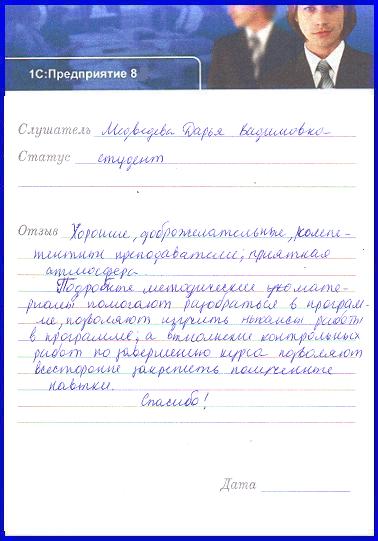 1С:Предприятие 8
Слушатель Медведева Дарья Вадимовна
Статус студент
Отзыв Хорошие, доброжелательные, компе-
тентные преподаватели, приятная
атмосфера.
Подробные методические
риалы помогают разобраться в програм-
ме, позволяют изучить нюансы работы
в программе, а выполнение контрольных
работ по завершению курса позволяют
всесторонне закрепить полученные
навыки.
Спасибо!
Дата